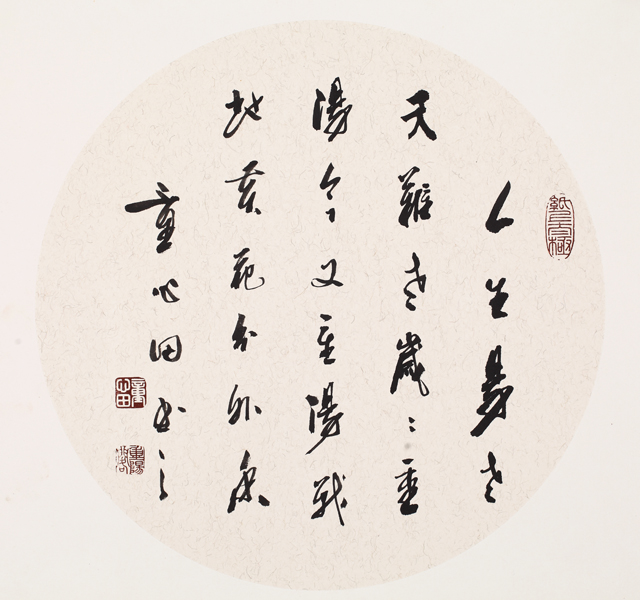 人生易老
天難老歲〻重
陽今又重陽戰
地黃花分外香
童心田書之
童心田